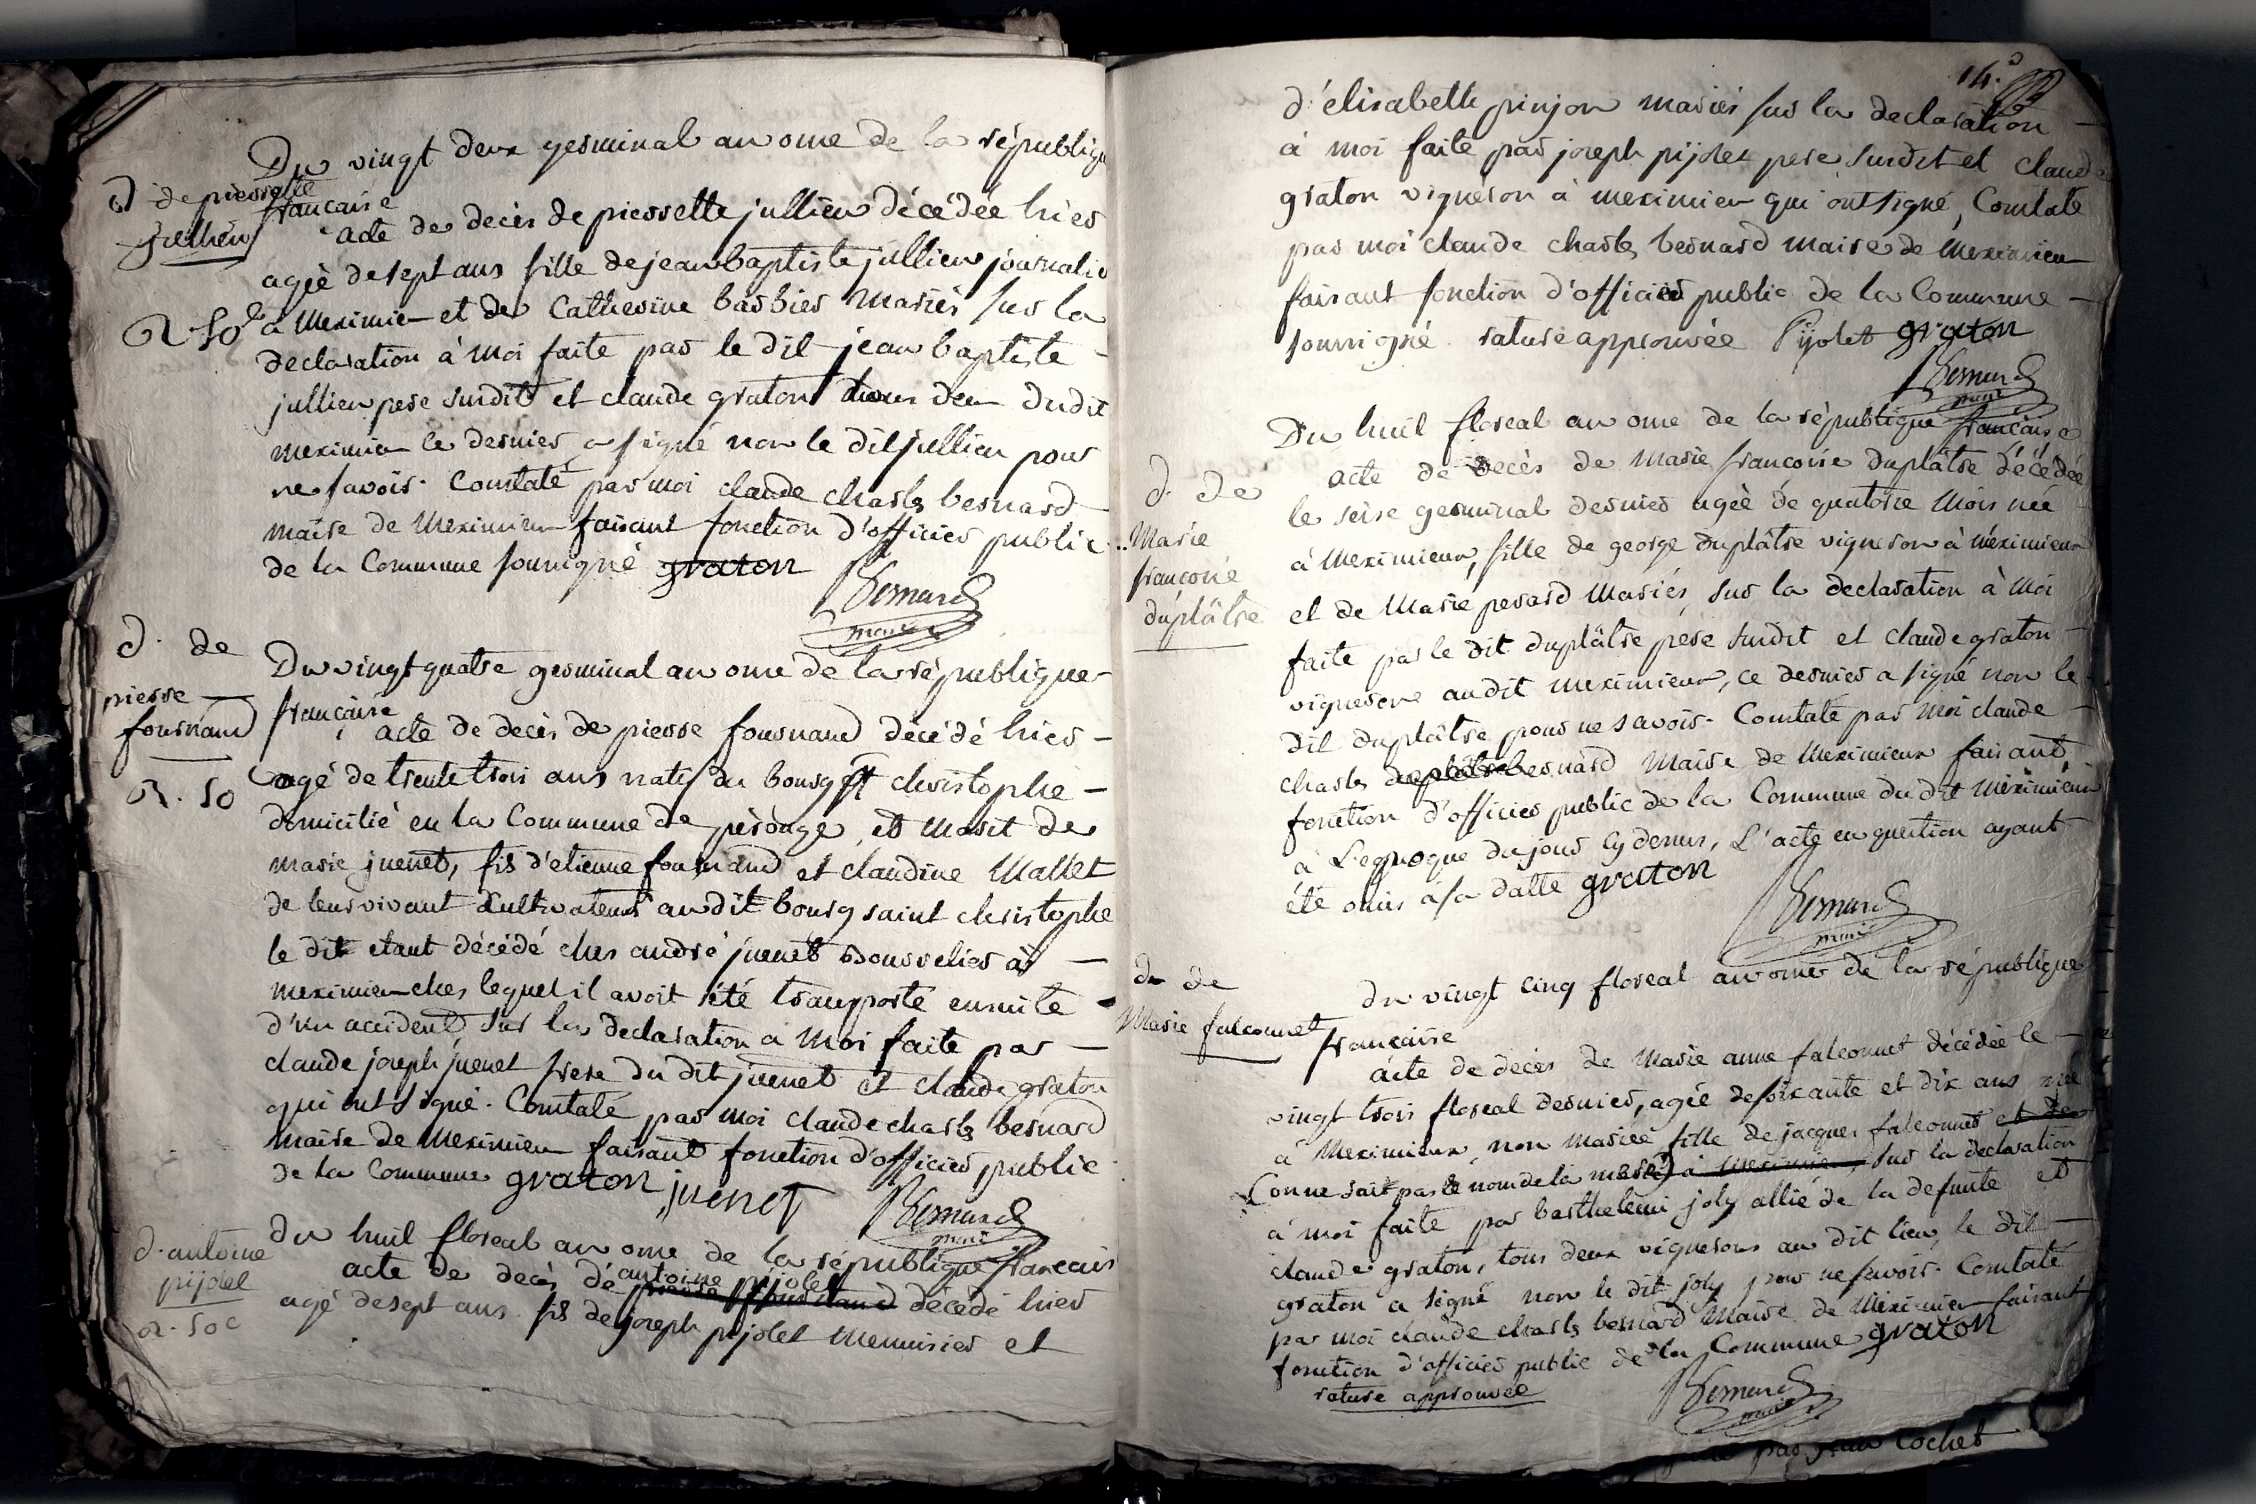 Du vingt deux germinal an onze de la république
d. de pierrette
française
jullien
acte de decès de pierrette jullien décédée hier
agèe de sept ans fille de jean baptiste jullien journalier
à Meximieu et de Catherine barbier mariés sur la
declaration à moi faite par le dit jean baptiste
jullien pere susdit et claude graton tous deu dudit
meximieu ce dernier a signé non le dit jullien pour
ne savoir. Constaté par moi claude charles bernard
maire de Meximieu faisant fonction d'officier public
de la Commune soussigné graton
Bernard
maire
d. de
pierre
fournand
r. 50
Du vingt quatre germinal an onze de la république
française
acte de decès de pierre fournand décédé hier
agé de trente trois ans natif du bourg st christophe
domicilié en la Commune de pèrouge, et Marit de
marie juenet, fils d'etienne fournand et claudine Mallet
de leur vivant cultivateurs audit bourg saint christophe
le dit etant décédé ches andré juenet Bourrelier à
meximieu ches lequel il avoit été transporté ensuite
d'un accident, sur la declaration a Moi faite par
claude joseph juenet frere du dit juenet et claude graton
qui ont signé. Constaté par moi claude charles bernard
maire de Meximieu faisant fonction d'officier public
de la Commune graton juenet
Bernard
maire
d. antoine
pijolet
r. 50c
du huit floreal an onze de la république français
acte de decès de antoine pijolet décedé hier
agé de sept ans. fils de joseph pijolet Menuisier et
14.
d'élisabeth pinjon mariés sur la declaration
à moi faite par joseph pijolet pere susdit et claude
graton vigneron à meximieu qui ont signé, Constaté
par moi claude charles bernard maire de Meximieu
faisant fonction d'officier public de la Commune
soussigné. rature approuvée Pijolet graton
Bernard
maire
d. de
Marie
francoise
duplâtre
Du huit floreal an onze de la république française
acte de decès de Marie francoise duplâtre décédée
le seise germinal dernier agèe de quatorse Mois née
à Meximieux, fille de george duplâtre vigneron à méximieux
et de Marie perard Mariés, sur la declaration à Moi
faite par le dit duplâtre pere susdit et claude graton
vigneron audit meximieux, ce dernier a signé non le
dit duplâtre pour ne savoir. Constaté par moi claude
charles duplâtre bernard Maire de Meximieux faisant
fonction d'officier public de la Commune dudit Méximieux
à L'epoque du jour cy dessus, L'acte en question ayant
été omis à sa datte graton
Bernard
maire
d. de
Marie falconnet
du vingt cinq floreal an onze de la république
française
acte de decès de Marie anne falconnet décédée le
vingt trois floreal dernier, agée de soixante et dix ans née
à Meximieux, non mariée fille de jacques falconnet et de
(on ne sait pas le nom de la mere) à meximieu, sur la declaration
à moi faite par barthelemi joly allié de la defunte et
claude graton, tous deux vignerons au dit lieu, le dit
graton a signé non le dit joly pour ne savoir. Constaté
par moi claude charles bernard Maire de Meximieu faisant
fonction d'officier public de la Commune graton
rature approuvée
Bernard
maire
par jean Cochet